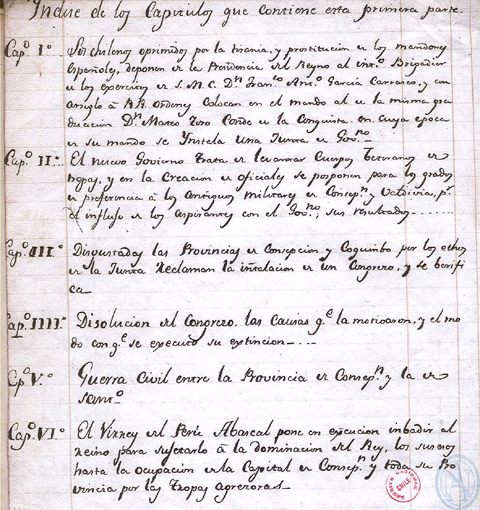 Yndice de los Capitulos que contiene esta primera parte.
Cap.º Iº Los chilenos oprimidos por la tirania, y prostitucion de los mandones
Españoles, deponen de la Presidencia del Reyno al Brigadier
de los exercitos de S.M.C. Dn. Franco. Anto. Garcia Carrasco, y con
arreglo à RR. ordenes colocan en el mando al de la misma gra
duacion Dn. Mateo Toro Conde de la Conquista. en cuya epoca
de su mando se Ynstala Una Junta de Govno.
Cap.º II.º El nuevo Govierno trata de levantar Cuerpos Veteranos de
tropas, y en la Creacion de oficiales se posponen para los grados
de preferencia â los antiguos militares de Concepn. y Valdivia, pr.
el influjo de los aspirantes con el Govno.; sus resultados
Cap.º III.º Disgustadas las Provincias de Concepcion y Coquimbo por los echos
de la Junta Reclaman la instalacion de un Congreso, y se berifi
ca
Cap.º IIII.º Disolucion del Congreso. las causas qe. la motivaron, y el mo
do con qe. se executo su extincion
Cp.º V.º Guerra Civil entre la Provincia de Concepn. y la de
Santo.
Cap.º VI.º El Virrey del Perù Abascal pone en execucion inbadir al
Reino para sujetarlo â la dominacion del Rey, los susesos
hasta la ocupacion de la Capital de Concepn. y toda su Pro
vincia por las tropas agresoras
CHILE